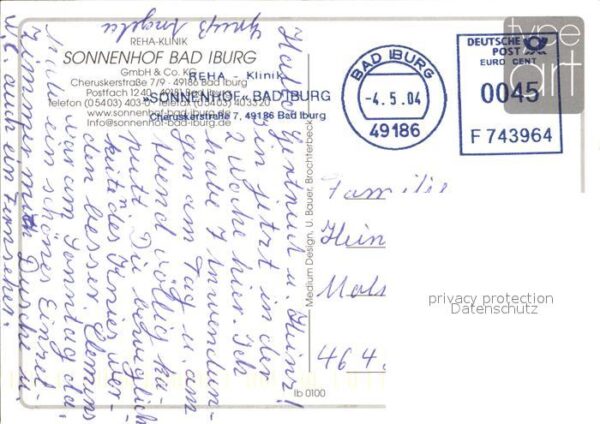 REHA-KLINIK
SONNENHOF BAD IBURG
GmbH & Co. KG
Cheruskerstraße 7/9 · 49186 Bad Iburg
Postfach 1240 · 49181 Bad Iburg
Telefon (05403) 403-0 · Telefax (05403) 403320
www.sonnenhof-bad-iburg.de
Info@sonnenhof-bad-iburg.de
REHA - Klinik
»SONNENHOF« BAD IBURG
Cheruskerstraße 7, 49186 Bad Iburg
BAD IBURG
-4.5.04
49186
DEUTSCHE POST
EURO CENT
0045
F 743964
type
art
Hallo Gertrud u. Heinz!
Bin jetzt in der
Woche hier. Ich
habe 7 Anwendun
gen am Tag u. am
Abend völlig ka-
putt. Die beweglich
keit des Knies wer-
den besser. Clemens
war am Sonntag da,
Habe ein schönes Einzel-
Zimmer mit Dusche u.
W.C. auch ein Fernseher.
Gruß Angela
Medium Design, U. Bauer, Brochterbeck
Ib 0100
Familie
Hein
464
privacy protection
Datenschutz